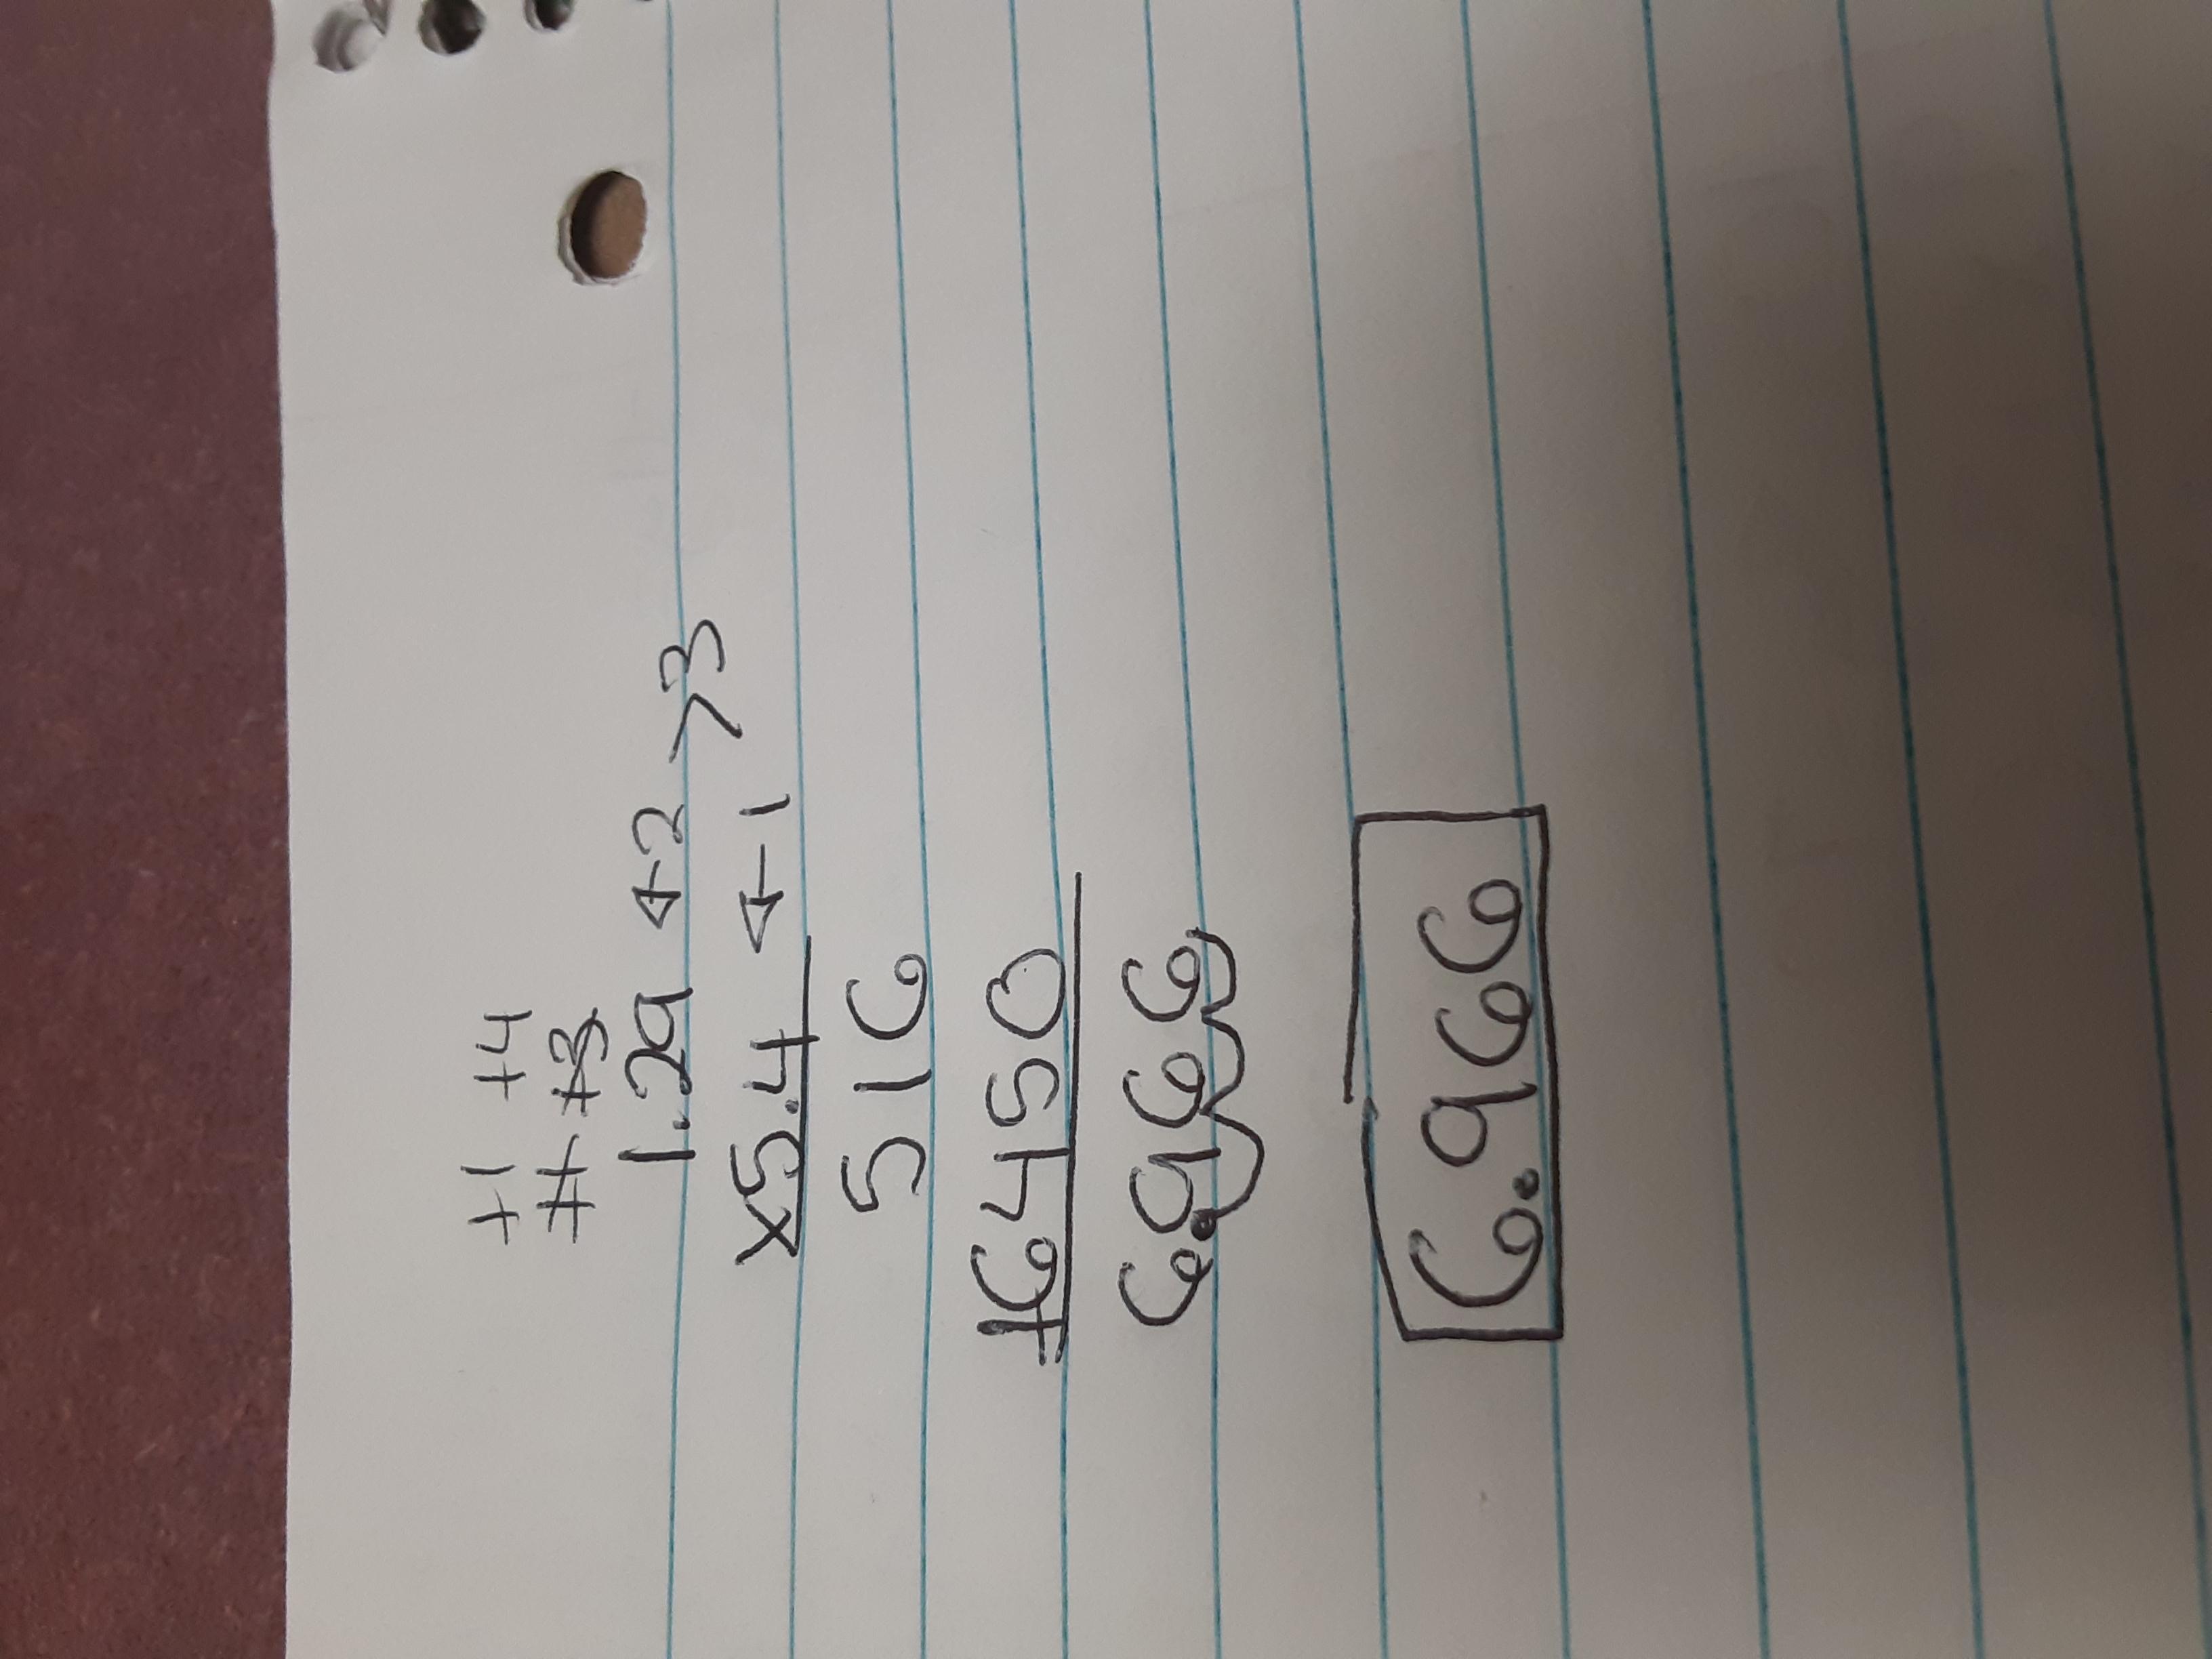 +1 +4
+1 +3
1.29 ← 2 > 3
x5.4 ← 1
516
+6450
6.966
6.966